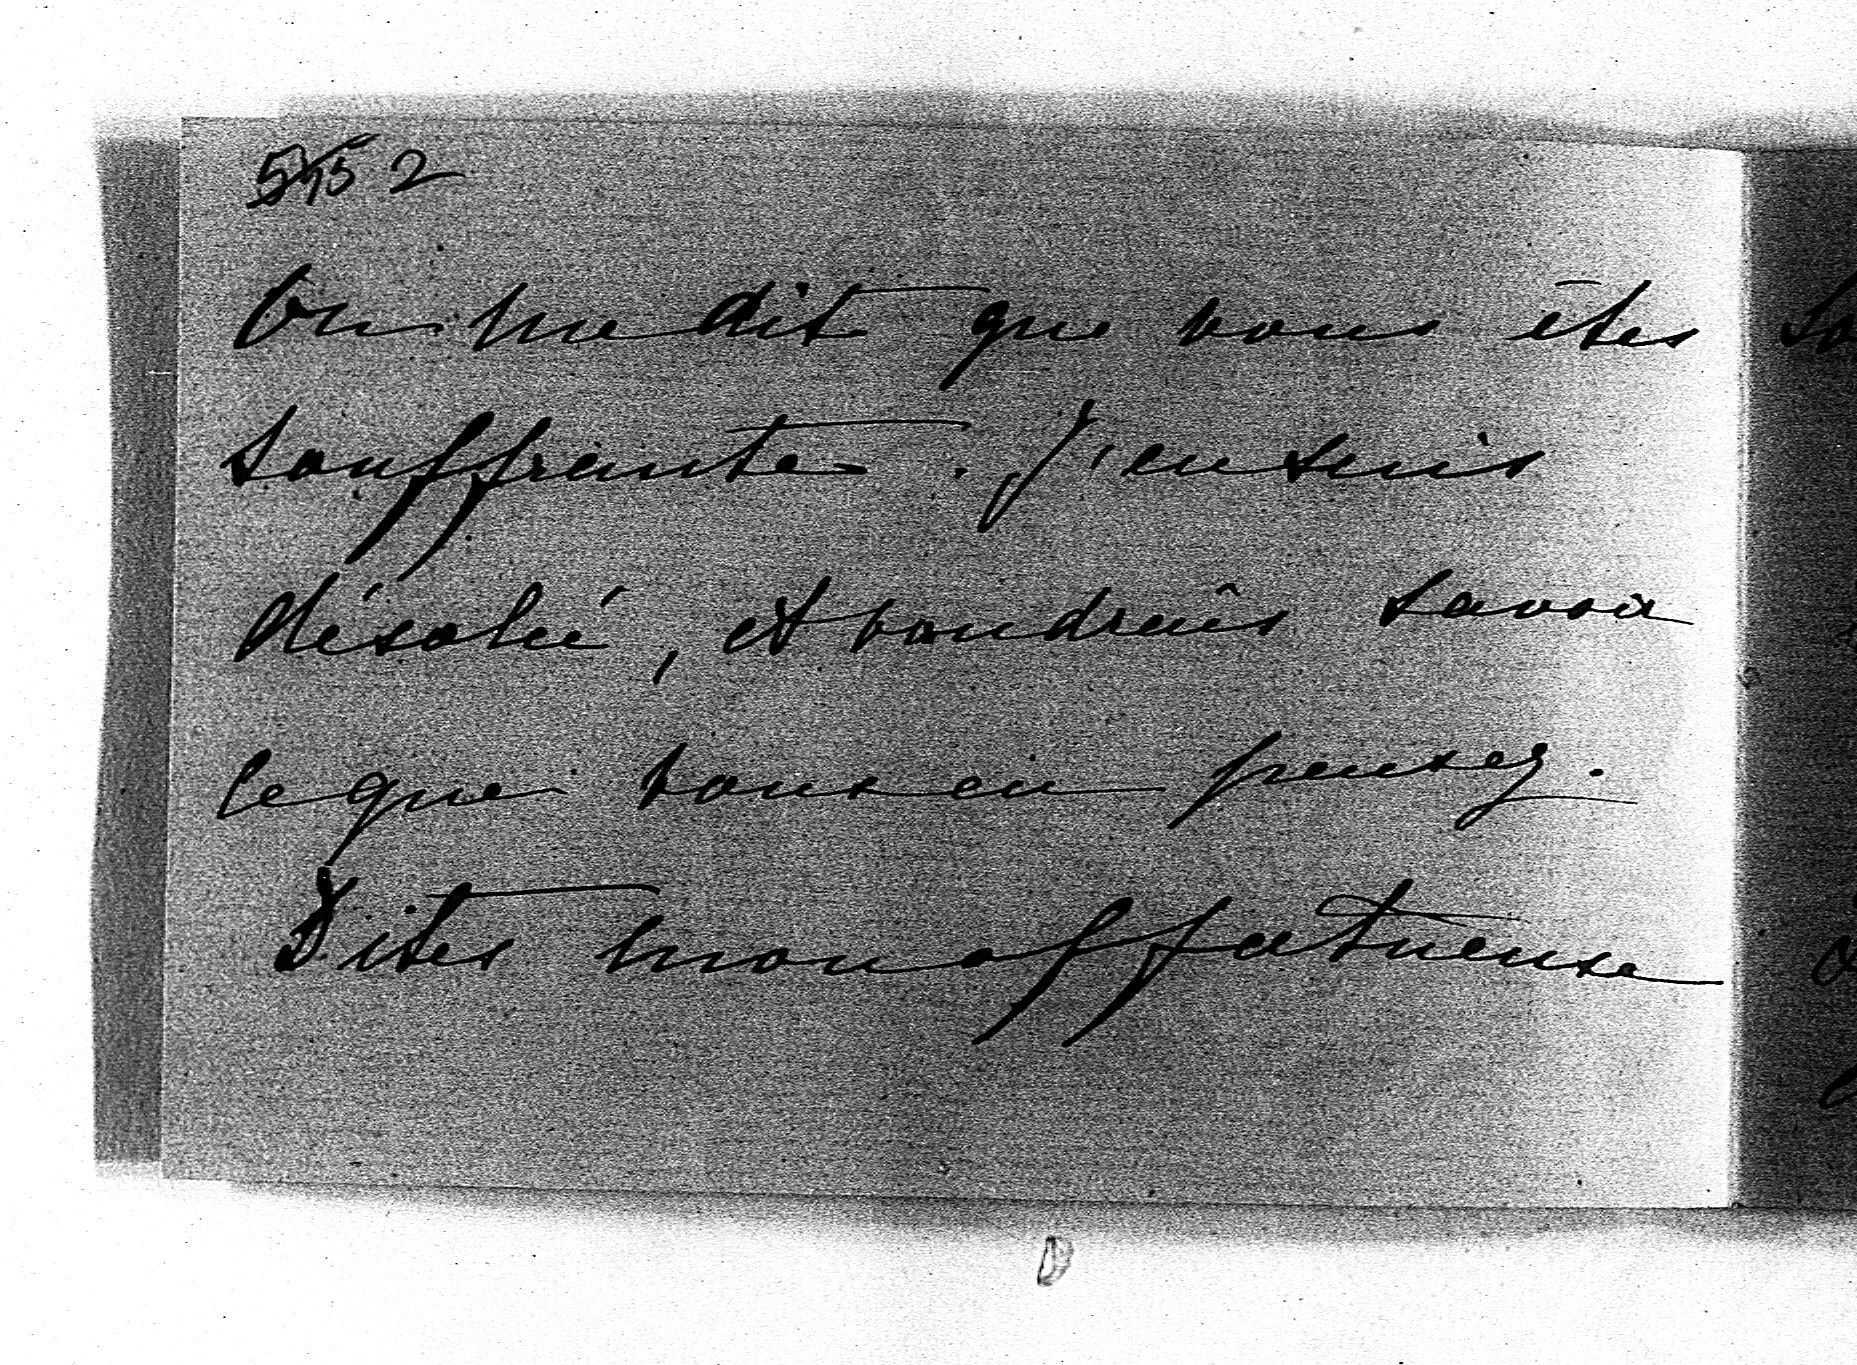 2
On me dit que vous êtes
souffrante. J'en suis
désolé, et voudrais savoir
ce que vous en pensez.
Dites mon affectueuse